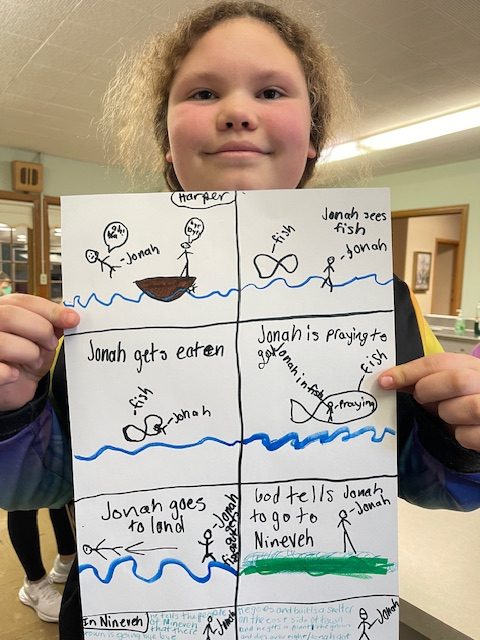 Harper
Jonah
Jonah sees
fish
fish
Jonah
Jonah gets eaten
fish
Jonah
Jonah is praying to
god
Jonah in fish
fish
Praying
Jonah goes
to land
Jonah
God tells Jonah
to go to
Nineveh
Jonah
In Nineveh
he tells the people
of Nineveh
that there
town is going bye bye
Jonah
he goes and builds a shelter
on the east side of town
Jonah